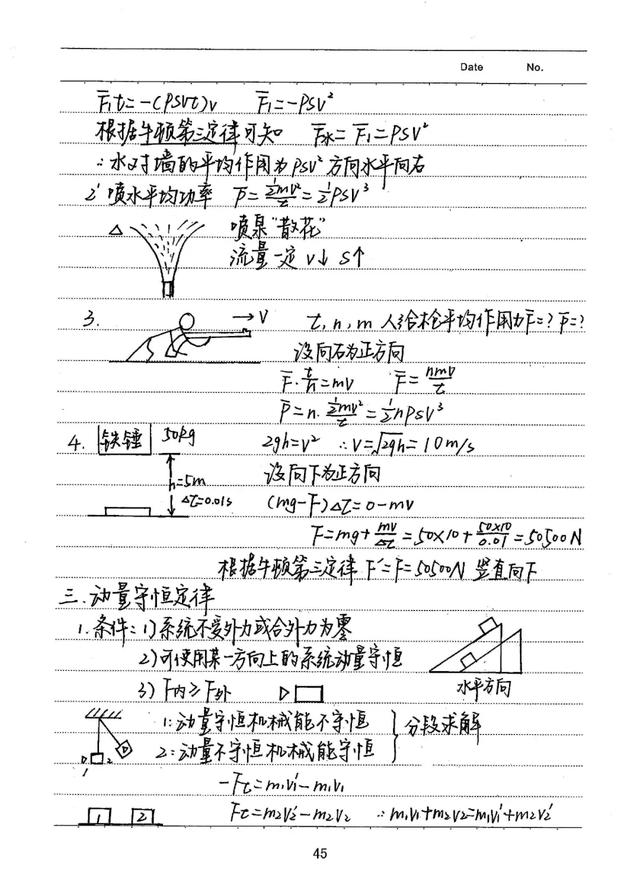 Date No.
F̄₁t=-(ρSVt)v F̄₁=-ρSV²
根据牛顿第三定律可知 F̄水=F̄₁=ρSV²
∴水对墙的平均作用力为ρSV² 方向水平向右
2' 喷水平均功率 P̄=½mv²/t=½ρSV³
△ 喷泉"散花"
流量一定 V↓ S↑
3. →V t, n, m 人给枪平均作用力F̄=? P̄=?
设向右为正方向
F̄·t/n=mv F̄=nmv/t
P̄=n·½mv²/t=½nρSV³
4. 铁锤 50kg 2gh=V² ∴V=√2gh=10m/s
h=5m 设向下为正方向
△t=0.01s (mg-F)△t=0-mv
F=mg+mv/△t=50×10+50×10/0.01=50500N
根据牛顿第三定律 F'=F=50500N 竖直向下
三.动量守恒定律
1.条件:1)系统不受外力或合外力为零
2)可使用某一方向上的系统动量守恒
水平方向
3) F内≫F外
1:动量守恒机械能不守恒
2:动量不守恒机械能守恒
分段求解
1 2
-Ft=m₁v₁'-m₁v₁
1 2 Ft=m₂v₂'-m₂v₂ ∴m₁v₁+m₂v₂=m₁v₁'+m₂v₂'
45